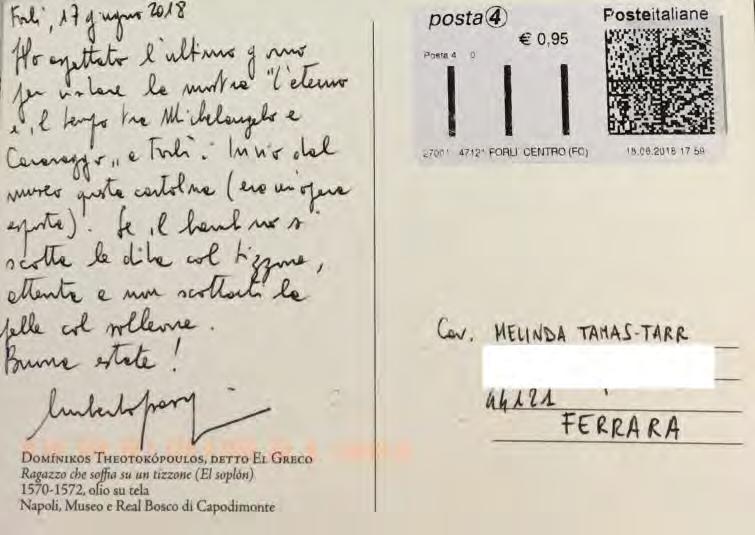 Forlì, 17 giugno 2018
Ho aspettato l'ultimo giorno
per visitare la mostra "L'eterno
e il tempo tra Michelangelo e
Caravaggio" a Forlì. Invio dal
museo questa cartolina (era un'opera
esposta). Se il bambino si
scotta le dita col tizzone,
attenta a non scottarti la
pelle col solleone.
Buona estate!
DOMÍNIKOS THEOTOKÓPOULOS, DETTO EL GRECO
Ragazzo che soffia su un tizzone (El soplón)
1570-1572, olio su tela
Napoli, Museo e Real Bosco di Capodimonte
posta 4
€ 0,95
Posteitaliane
Posta 4 0
47121 FORLI' CENTRO (FC)
18.06.2018 17 59
Cav. MELINDA TAMAS-TARR
44121
FERRARA